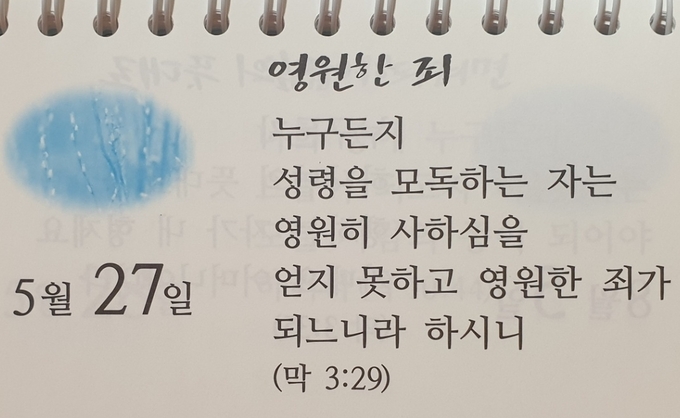 영원한 죄
누구든지
성령을 모독하는 자는
영원히 사하심을
얻지 못하고 영원한 죄가
되느니라 하시니
(막 3:29)
5월 27일